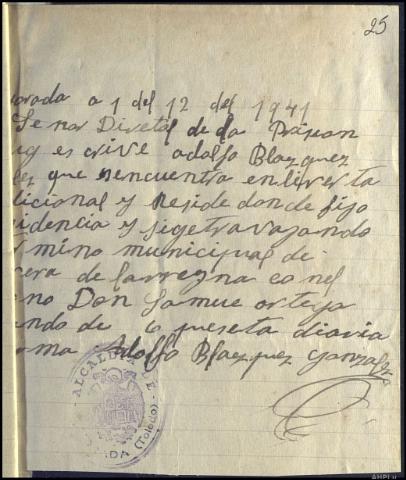 25
orada a 1 del 12 del 1941
Señor Diretol de la Prision
es crive Adolfo Blazquez
que sencuentra enliverta
dicional y Reside don de fijo
sidencia y sigetravajando
rmino municipal de
era de la reyna con el
no Don Samue ortega
ando de 6 peseta diaria
rma Adolfo Blaezquez Gonzalez
ALCALDIA DE
ADA (Toledo)
AHPLU